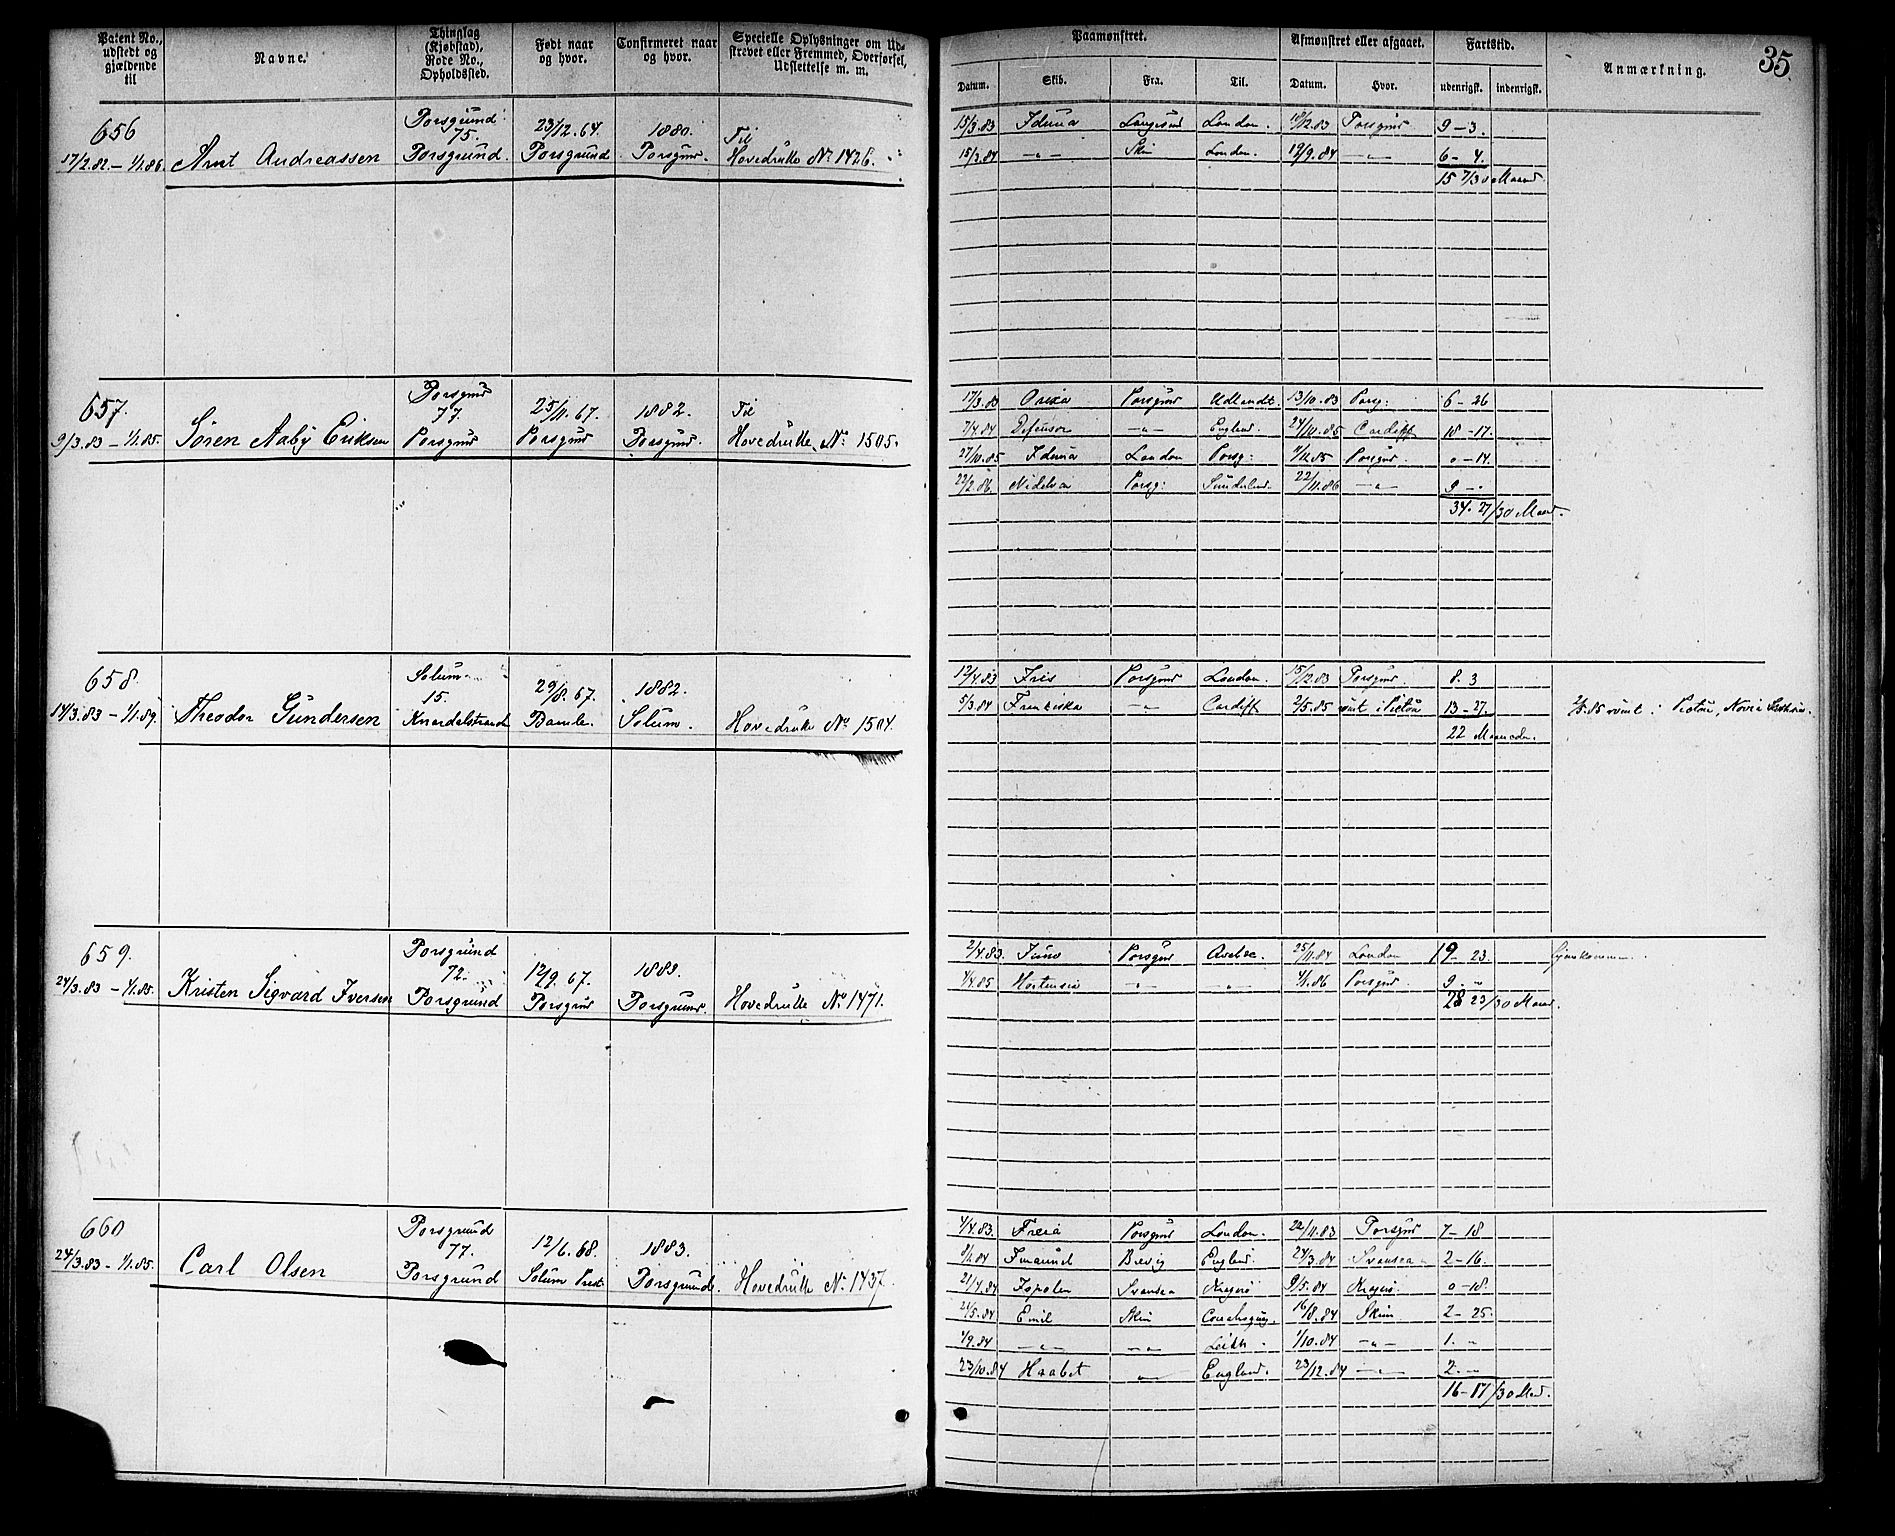 35.
Patent No., udstedt og gjældende til
Navne.
Thinglag (Kjøbstad), Rode No., Opholdssted.
Født naar og hvor.
Confirmeret naar og hvor.
Specielle Oplysninger om Udskrevet eller Fremmed, Overførsel, Udslettelse m. m.
Paamønstret.
Afmønstret eller afgaaet.
Fartstid.
Anmærkning.
Datum. Skib. Fra. Til. Datum. Hvor. udenrigsk. indenrigsk.
656
17/2.82 – 1/1.86.
Arnt Andreassen
Porsgrund
75.
Porsgrund.
23/12.64.
Porsgrund
1880.
Porsgrund.
Til
Hovedrulle No 1426.
15/3.83 Iduna Langesund London. 18/12.83 Porsgrund 9 – 3.
15/3.84 –„– Skien London. 19/9.84 –„– 6 – 4.
15 7/30 Maaned.
657.
9/3.83 – 1/1.85.
Søren Aaby Eriksen
Porsgrund
77.
Porsgrund
25/11.67.
Porsgrund
1882.
Porsgrund.
Til
Hovedrulle No 1505.
17/3.83 Orixa Porsgrund Udlandet. 13/10.83 Porsg: 6 – 26
7/4.84 Defensor –„– England. 24/10.85 Cardiff 18 – 17.
27/10.85 Iduna London Porsg: 11/11.85 Porsgrund. 0 – 14.
22/2.86. Nidelva Porsg: Sunderland. 22/11.86 –„– 9 – .
34. 27/30 Maaned.
658.
14/3.83 – 1/1.89.
Theodor Gundersen
Solum
15.
Knardalstrand
29/8.67.
Bamle.
1882.
Solum.
Hovedrulle No 1504.
12/4.83 Iris Porsgrund London. 15/12.83 Porsgrund. 8. 3
5/3.84 Franziska –„– Cardiff 2/5.85 rømt i Pictou 13 – 27.
2/5.85 rømt i Pictou, Nova
22 Maaneder.
659.
24/3.83 – 1/1.85.
Kristen Sigvard Iversen
Porsgrund
72.
Porsgrund
12/9.67.
Porsgrund
1883.
Porsgrund.
Hovedrulle No 1471.
2/4.83. Juno Porsgrund 25/11.84 London 19 – 23 Hjemkommen
4/4.85 Hortensia –„– –„– 4/1.86 Porsgrund. 9. „
28 23/30 Maaned.
660
24/3.83 – 1/1.85.
Carl Olsen
Porsgrund
77.
Porsgrund
12/6.68.
Solum Præst.
1883.
Porsgrund.
Hovedrulle No 1437.
4/4.83. Freia Porsgrund London. 22/11.83 Porsgrund 7 – 18
Immanuel Brevig England. 24/3.84 Svansea 2 – 16.
21/4.84 Svansea Kragerø 9/5.84 Kragerø. 0 – 18.
24/5.84 Emil Skien 16/8.84 Skien 2 – 25.
1/9.84 –„– –„– Leith 1/10.84 –„– 1. „
23/10.84 Haabet –„– England. 23/12.84 –„– 2. –
16 – 17/30 Md.